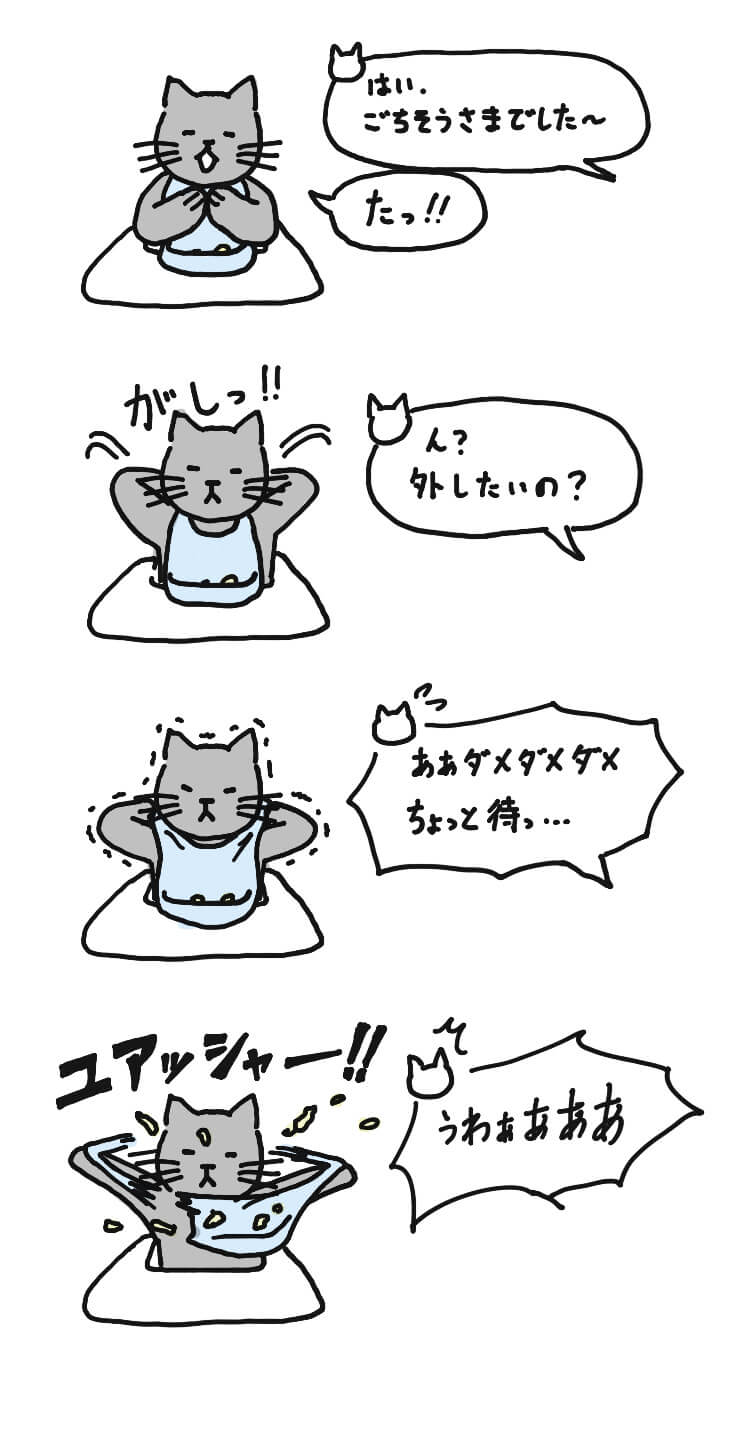 はい.
ごちそうさまでした〜
たっ!!
がしっ!!
ん?
外したいの?
あぁダメダメダメ
ちょっと待っ...
ユアッシャー!!
うわぁあああ